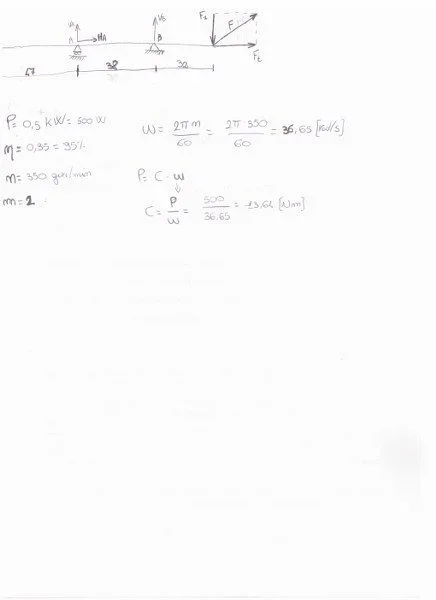 VA HA VB F₂ F Ft
A B
67 38 32
P= 0,5 kW = 500 W
η = 0,35 = 35%
n = 350 giri/min
m = 2
ω = 2πn/60 = 2π 350/60 = 36,65 [rad/s]
P = C · ω
C = P/ω = 500/36.65 = 13,64 [Nm]